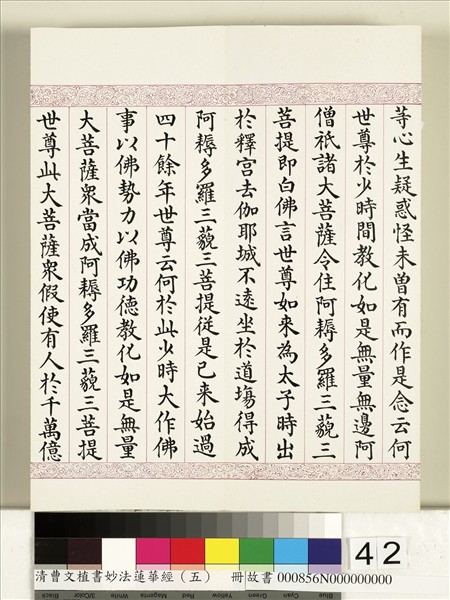 等心生疑惑怪未曾有而作是念云何
世尊於少時間教化如是無量無邊阿
僧祇諸大菩薩令住阿耨多羅三藐三
菩提即白佛言世尊如來為太子時出
於釋宮去伽耶城不遠坐於道場得成
阿耨多羅三藐三菩提從是已来始過
四十餘年世尊云何於此少時大作佛
事以佛勢力以佛功德教化如是無量
大菩薩眾當成阿耨多羅三藐三菩提
世尊此大菩薩眾假使有人於千萬億
42
清曹文植書妙法蓮華經（五） 冊故書 000856N000000000
Black 3/Color White Magenta Red Yellow Green Cyan Blue